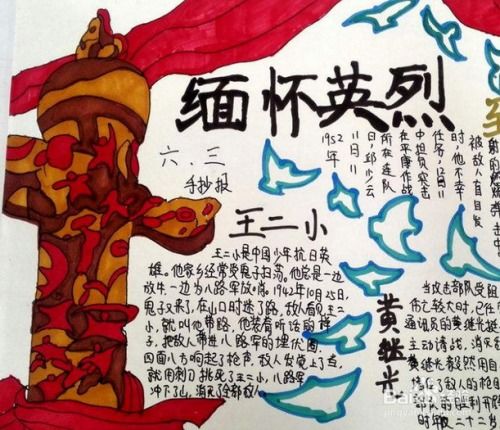 缅怀英烈
六、三
手抄报
王二小
王二小是中国少年抗日英
雄。他家乡经常受鬼子扫荡。他总是一边
放牛一边为八路军放哨。1942年10月25日,
鬼子又来了,在山口时迷了路,敌人看见王二
小,就叫他带路,他装着听话的样
子,把敌人带进八路军的埋伏圈,
四面八方响起了枪声,敌人发觉上了当,
就用刺刀挑死了王二小,八路军
冲下了山,消灭了全部敌人。
1952年
11月11
日,邱少云
所在连队
在平康作战
中担负突击
任务,12日11
时,他不幸
被敌人盲目发
黄继光
当攻击部队受阻
伤亡较大时,已任
通讯员的黄继光挺
主动请战,消灭
黄继光毅然用自
敌人的枪
部队的胜利开
时年二十二岁